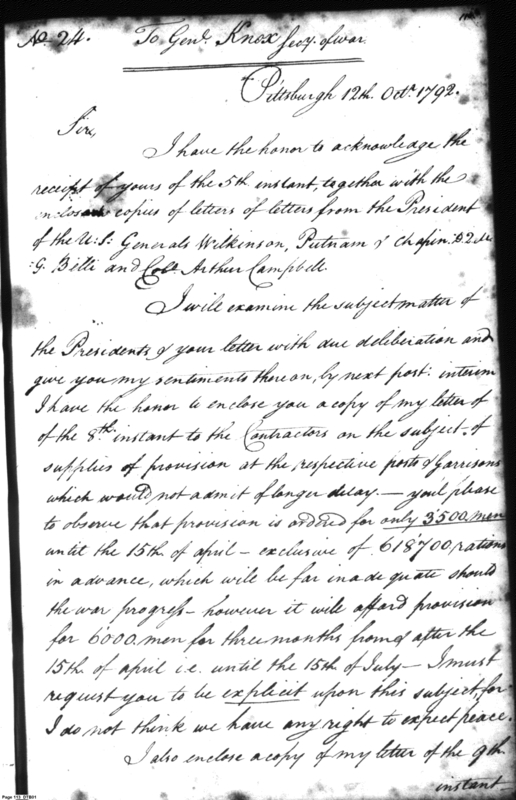 No. 24. To Genl. Knox Secy. of war
Pittsburgh 12th. Octr. 1792.
Sir,
I have the honor to acknowledge the
receipt of yours of the 5th instant, together with the
copies of letters of letters from the President
of the U: S: Generals Wilkinson, Putnam & Chapin. D. Q
:G. Belli and Colo. Arthur Campbell.
I will examine the subject matter of
the Presidents & your letter with due deliberation and
give you my sentiments thereon, by next post: interim
I have the honor to enclose you a copy of my letter of
of the 8th instant to the Contractors on the subject of
supplies of provision at the respective posts & Garrisons
which would not admit of longer delay. — you'l please
to observe that provision is ordered for only 3500. men
until the 15th of april — exclusive of 618700 rations
in advance, which will be far inadequate should
the war progress — however it will afford provision
for 6000. men for three months from & after the
15th. of april i.e. until the 15th of July — I must
request you to be explicit upon this subject, for
I do not think we have any right to expect peace.
I also enclose a copy of my letter of the 9th.
instant
Page 113 DTB01